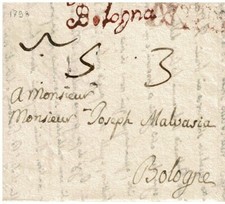 1794
Bologna
5 3
A Monsieur
Monsieur Joseph Malvasia
Bologne